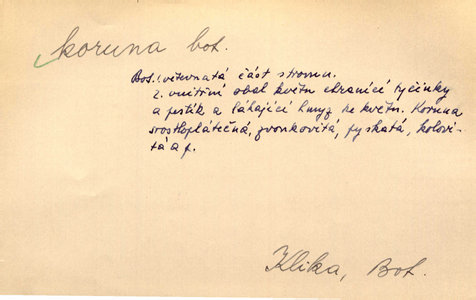 koruna bot.
Bot. 1. větevnatá část stromu.
2. vnitřní obal květu chránící tyčinky
a pestík a lákající hmyz ke květu. Koruna
srostloplátečná, zvonkovitá, pyskatá, kolovi-
tá a j.
Klika, Bot.